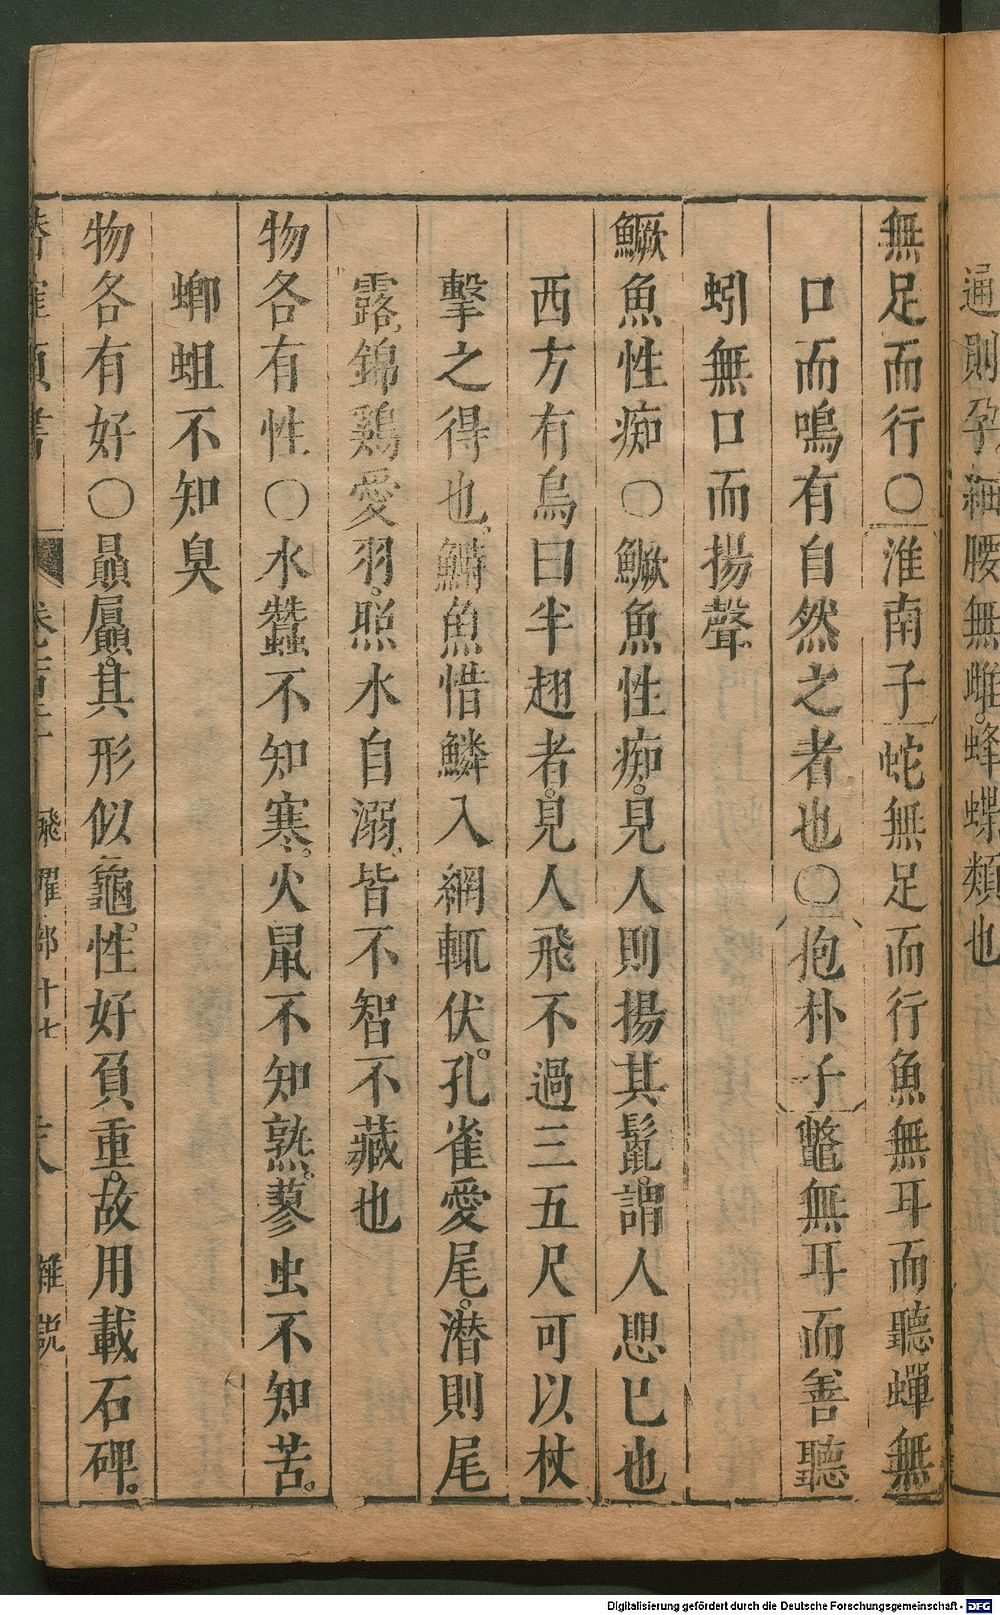 通則孕細腰無雌蜂蝶類也
無足而行○淮南子蛇無足而行魚無耳而聽蟬無
口而鳴有自然之者也○抱朴子鼈無耳而善聽
蚓無口而揚聲
鱖魚性痴○鱖魚性痴見人則揚其鬣謂人思已也
西方有鳥曰半翅者見人飛不過三五尺可以杖
擊之得也鰣魚惜鱗入網輒伏孔雀愛尾潛則尾
露錦鷄愛羽照水自溺皆不智不藏也
物各有性○水蠶不知寒火鼠不知熟蓼虫不知苦
蝍蛆不知臭
物各有好○贔屭其形似龜性好負重故用載石碑
飛躍部十七 雜説
Digitalisierung gefördert durch die Deutsche Forschungsgemeinschaft - DFG